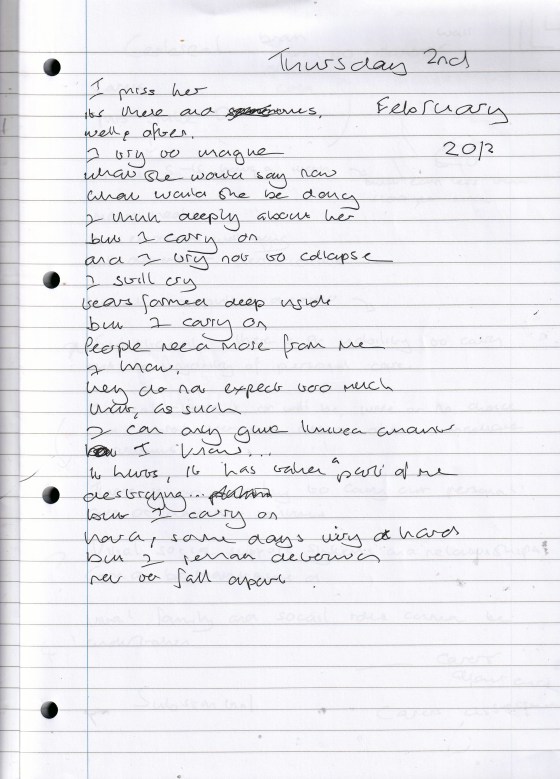 Thursday 2nd
I miss her
its there and
February
often.
2012
I try to imagine
what she would say now
what would she be doing
I think deeply about her
but I carry on
and I try not to collapse
I still cry
tears formed deep inside
but I carry on
People need more from me
I know,
they do not expect too much
that, as such
I can only give limited amounts
I know...
it hurts, it has taken a part of me
destroying...
but I carry on
hard, some days very hard
but I remain determined
not to fall apart.